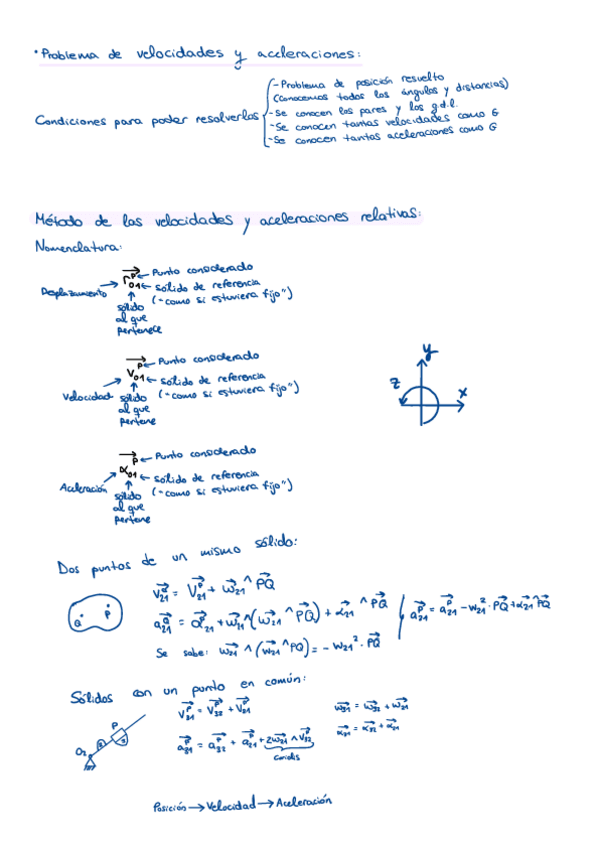 • Problema de velocidades y aceleraciones:
Condiciones para poder resolverlos
- Problema de posición resuelto
(Conocemos todos los ángulos y distancias)
- Se conocen los pares y los g.d.l.
- Se conocen tantas velocidades como G
- Se conocen tantas aceleraciones como G
Método de las velocidades y aceleraciones relativas:
Nomenclatura:
r⃗₀₁ᴾ ← Punto considerado
Desplazamiento
← sólido de referencia
("como si estuviera fijo")
sólido
al que
pertenece
v⃗₀₁ᴾ ← Punto considerado
Velocidad
← sólido de referencia
("como si estuviera fijo")
sólido
al que
pertene
α⃗₀₁ᴾ ← Punto considerado
Aceleración
← sólido de referencia
("como si estuviera fijo")
sólido
al que
pertene
y
z
x
Dos puntos de un mismo sólido:
Q P
v⃗₂₁^Q = v⃗₂₁^P + ω⃗₂₁ ^ PQ⃗
a⃗₂₁^Q = a⃗₂₁^P + ω⃗₂₁ ^ (ω⃗₂₁ ^ PQ⃗) + α⃗₂₁ ^ PQ⃗
a⃗₂₁^P = a⃗₂₁^P - ω₂₁² · PQ⃗ + α⃗₂₁ ^ PQ⃗
Se sabe: ω⃗₂₁ ^ (ω⃗₂₁ ^ PQ⃗) = - ω₂₁² · PQ⃗
Sólidos con un punto en común:
P
O₂
2
3
v⃗₃₁^P = v⃗₃₂^P + v⃗₂₁^P
ω⃗₃₁ = ω⃗₃₂ + ω⃗₂₁
a⃗₃₁^P = a⃗₃₂^P + a⃗₂₁^P + 2ω⃗₂₁ ^ v⃗₃₂^P
α⃗₃₁ = α⃗₃₂ + α⃗₂₁
Coriolis
Posición → Velocidad → Aceleración